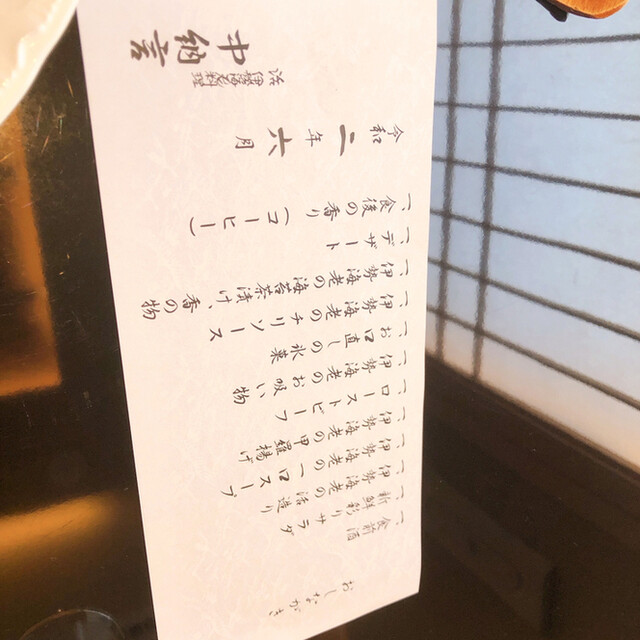 おしながき
一、食前酒
一、新鮮彩りサラダ
一、伊勢海老の活造り
一、伊勢海老の一口スープ
一、伊勢海老の甲羅揚げ
一、ローストビーフ
一、伊勢海老のお吸い物
一、お口直しの氷菓
一、伊勢海老のチリソース
一、伊勢海老の海苔茶漬け、香の物
一、デザート
一、食後の香り（コーヒー）
令和二年六月
活伊勢海老料理
中納言